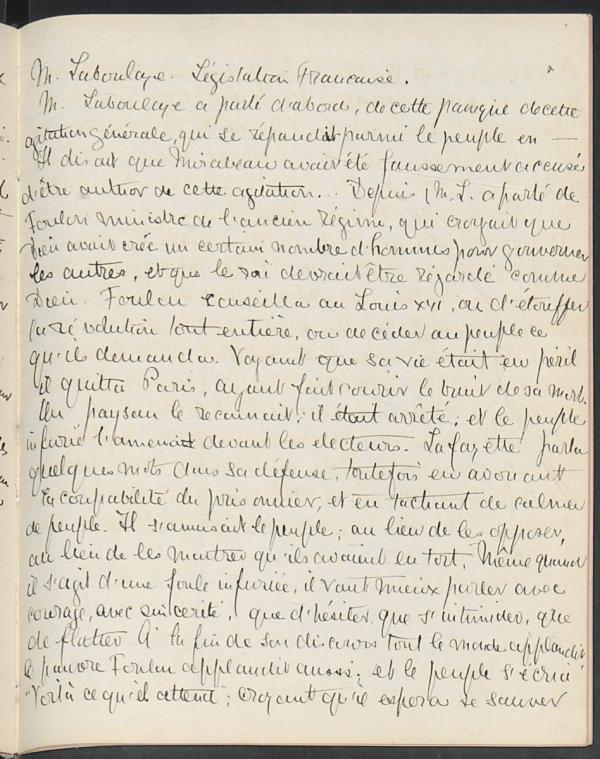 M. Laboulaye. Législation Française.
M. Laboulaye a parlé d'abord, de cette panique de cette
agitation générale, qui se répandit parmi le peuple en —
Il disait que Mirabeau avait été faussement accusé
d'être author de cette agitation... Depuis M. L. a parlé de
Foulon ministre de l'ancien régime, qui croyait que
Dieu avait crée un certain nombre d'hommes pour gouverner
les autres, et que le roi devrait être régardé comme
Dieu. Foulon conseilla au Louis XVI, ou d'étouffer
la révolution tout entière, ou de céder au peuple ce
qu'ils demanda. Voyant que sa vie était en péril
il quitta Paris, ayant fait courir le bruit de sa mort.
Un paysan le reconnait; il était arrêté; et le peuple
infurié l'amenait devant les electeurs. Lafayette parla
quelques mots dans sa défense, toutefois en avouant
la coupabilité du prisonnier, et en tachant de calmer
de peuple. Il s'amusait le peuple; au lieu de les opposer,
au lieu de les montrer qu'ils avaient en tort. Même quand
il s'agit d'une foule infuriée, il vaut mieux parler avec
courage, avec sincerité, que d'hésiter, que s'intimider, que
de flatter. À la fin de son discours tout le monde applaudit
le pauvre Foulon applaudit aussi; et le peuple s'écria
"Voilà ce qu'il attend"; croyant qu'il espera se sauver